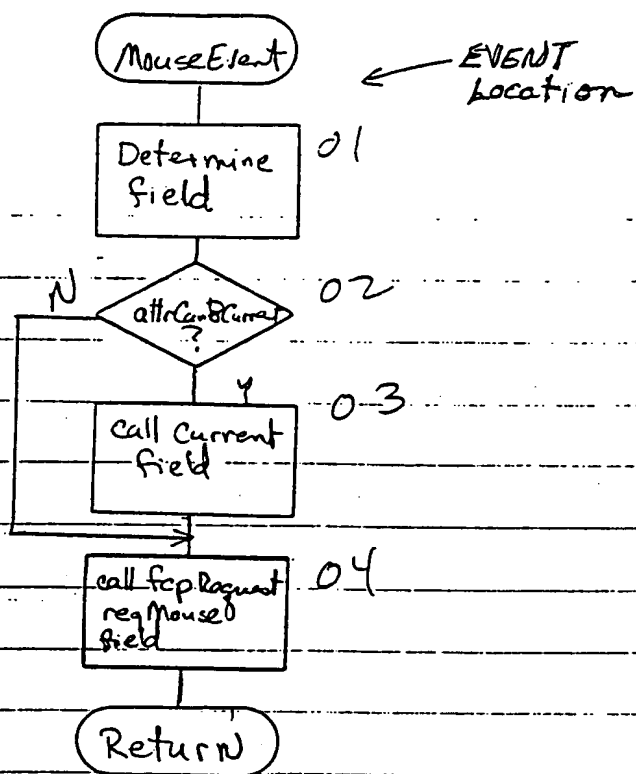 MouseEvent
EVENT
Location
Determine
field
01
N
02
attrCanBCurrent
?
Y
03
call Current
field
call fcpRequest
reqMouse
field
04
Return